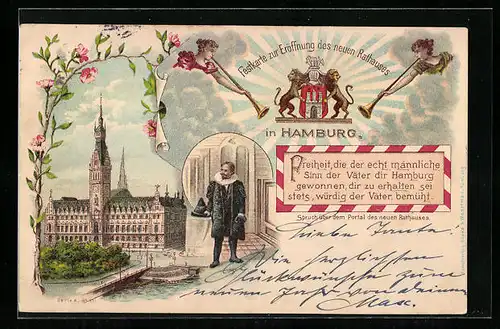 Festkarte zur Eröffnung das neuen Rathauses
in HAMBURG.
Freiheit, die der echt männliche
Sinn der Väter dir Hamburg
gewonnen, dir zu erhalten sei
stets, würdig der Väter bemüht.
Spruch über dem Portal des neuen Rathauses.
Liebe Tante!
Die herzlichsten
Glückwünsche zum
neuen Jahr von deinem
Max.